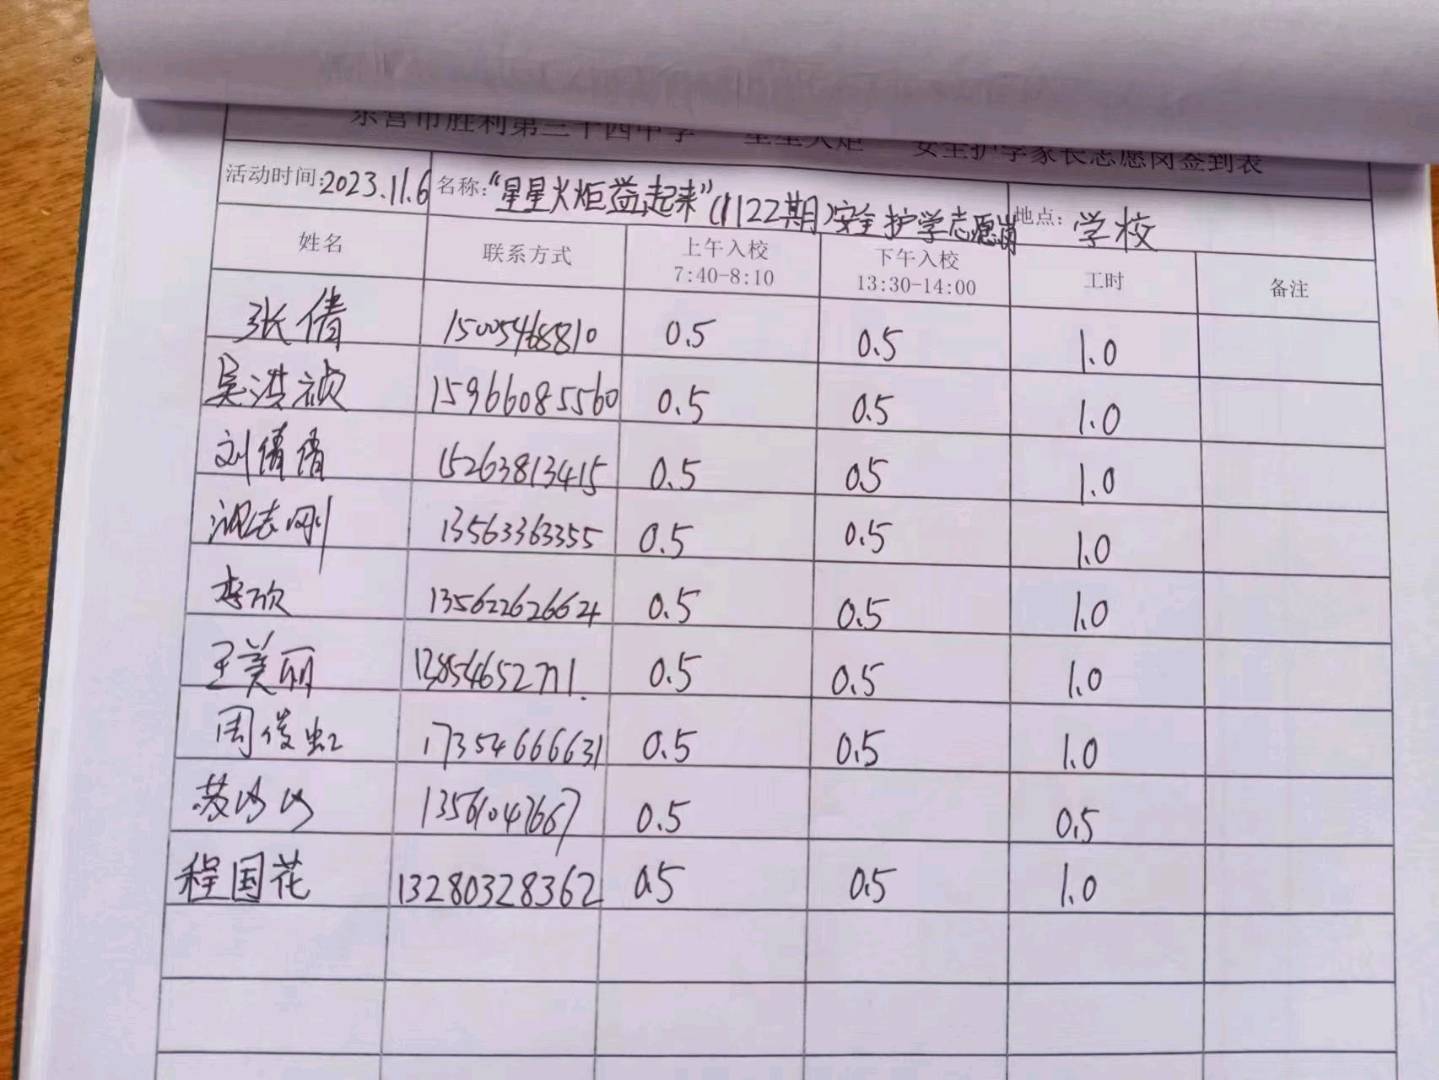 东营市胜利第三十四中学 星星火炬 安全护学家长志愿岗签到表
活动时间:2023.11.6 名称:“星星火炬益起来”(1122期)安全护学志愿岗 地点: 学校
姓名 联系方式 上午入校 7:40-8:10 下午入校 13:30-14:00 工时 备注
张倩 15005468810 0.5 0.5 1.0
吴洪祯 15966085560 0.5 0.5 1.0
刘倩倩 15263813415 0.5 0.5 1.0
志刚 13563363355 0.5 0.5 1.0
李欣 13562262662 0.5 0.5 1.0
王美丽 13854652771. 0.5 0.5 1.0
周俊虹 17354666631 0.5 0.5 1.0
苏 13561047667 0.5 0.5
程国花 13280328362 0.5 0.5 1.0